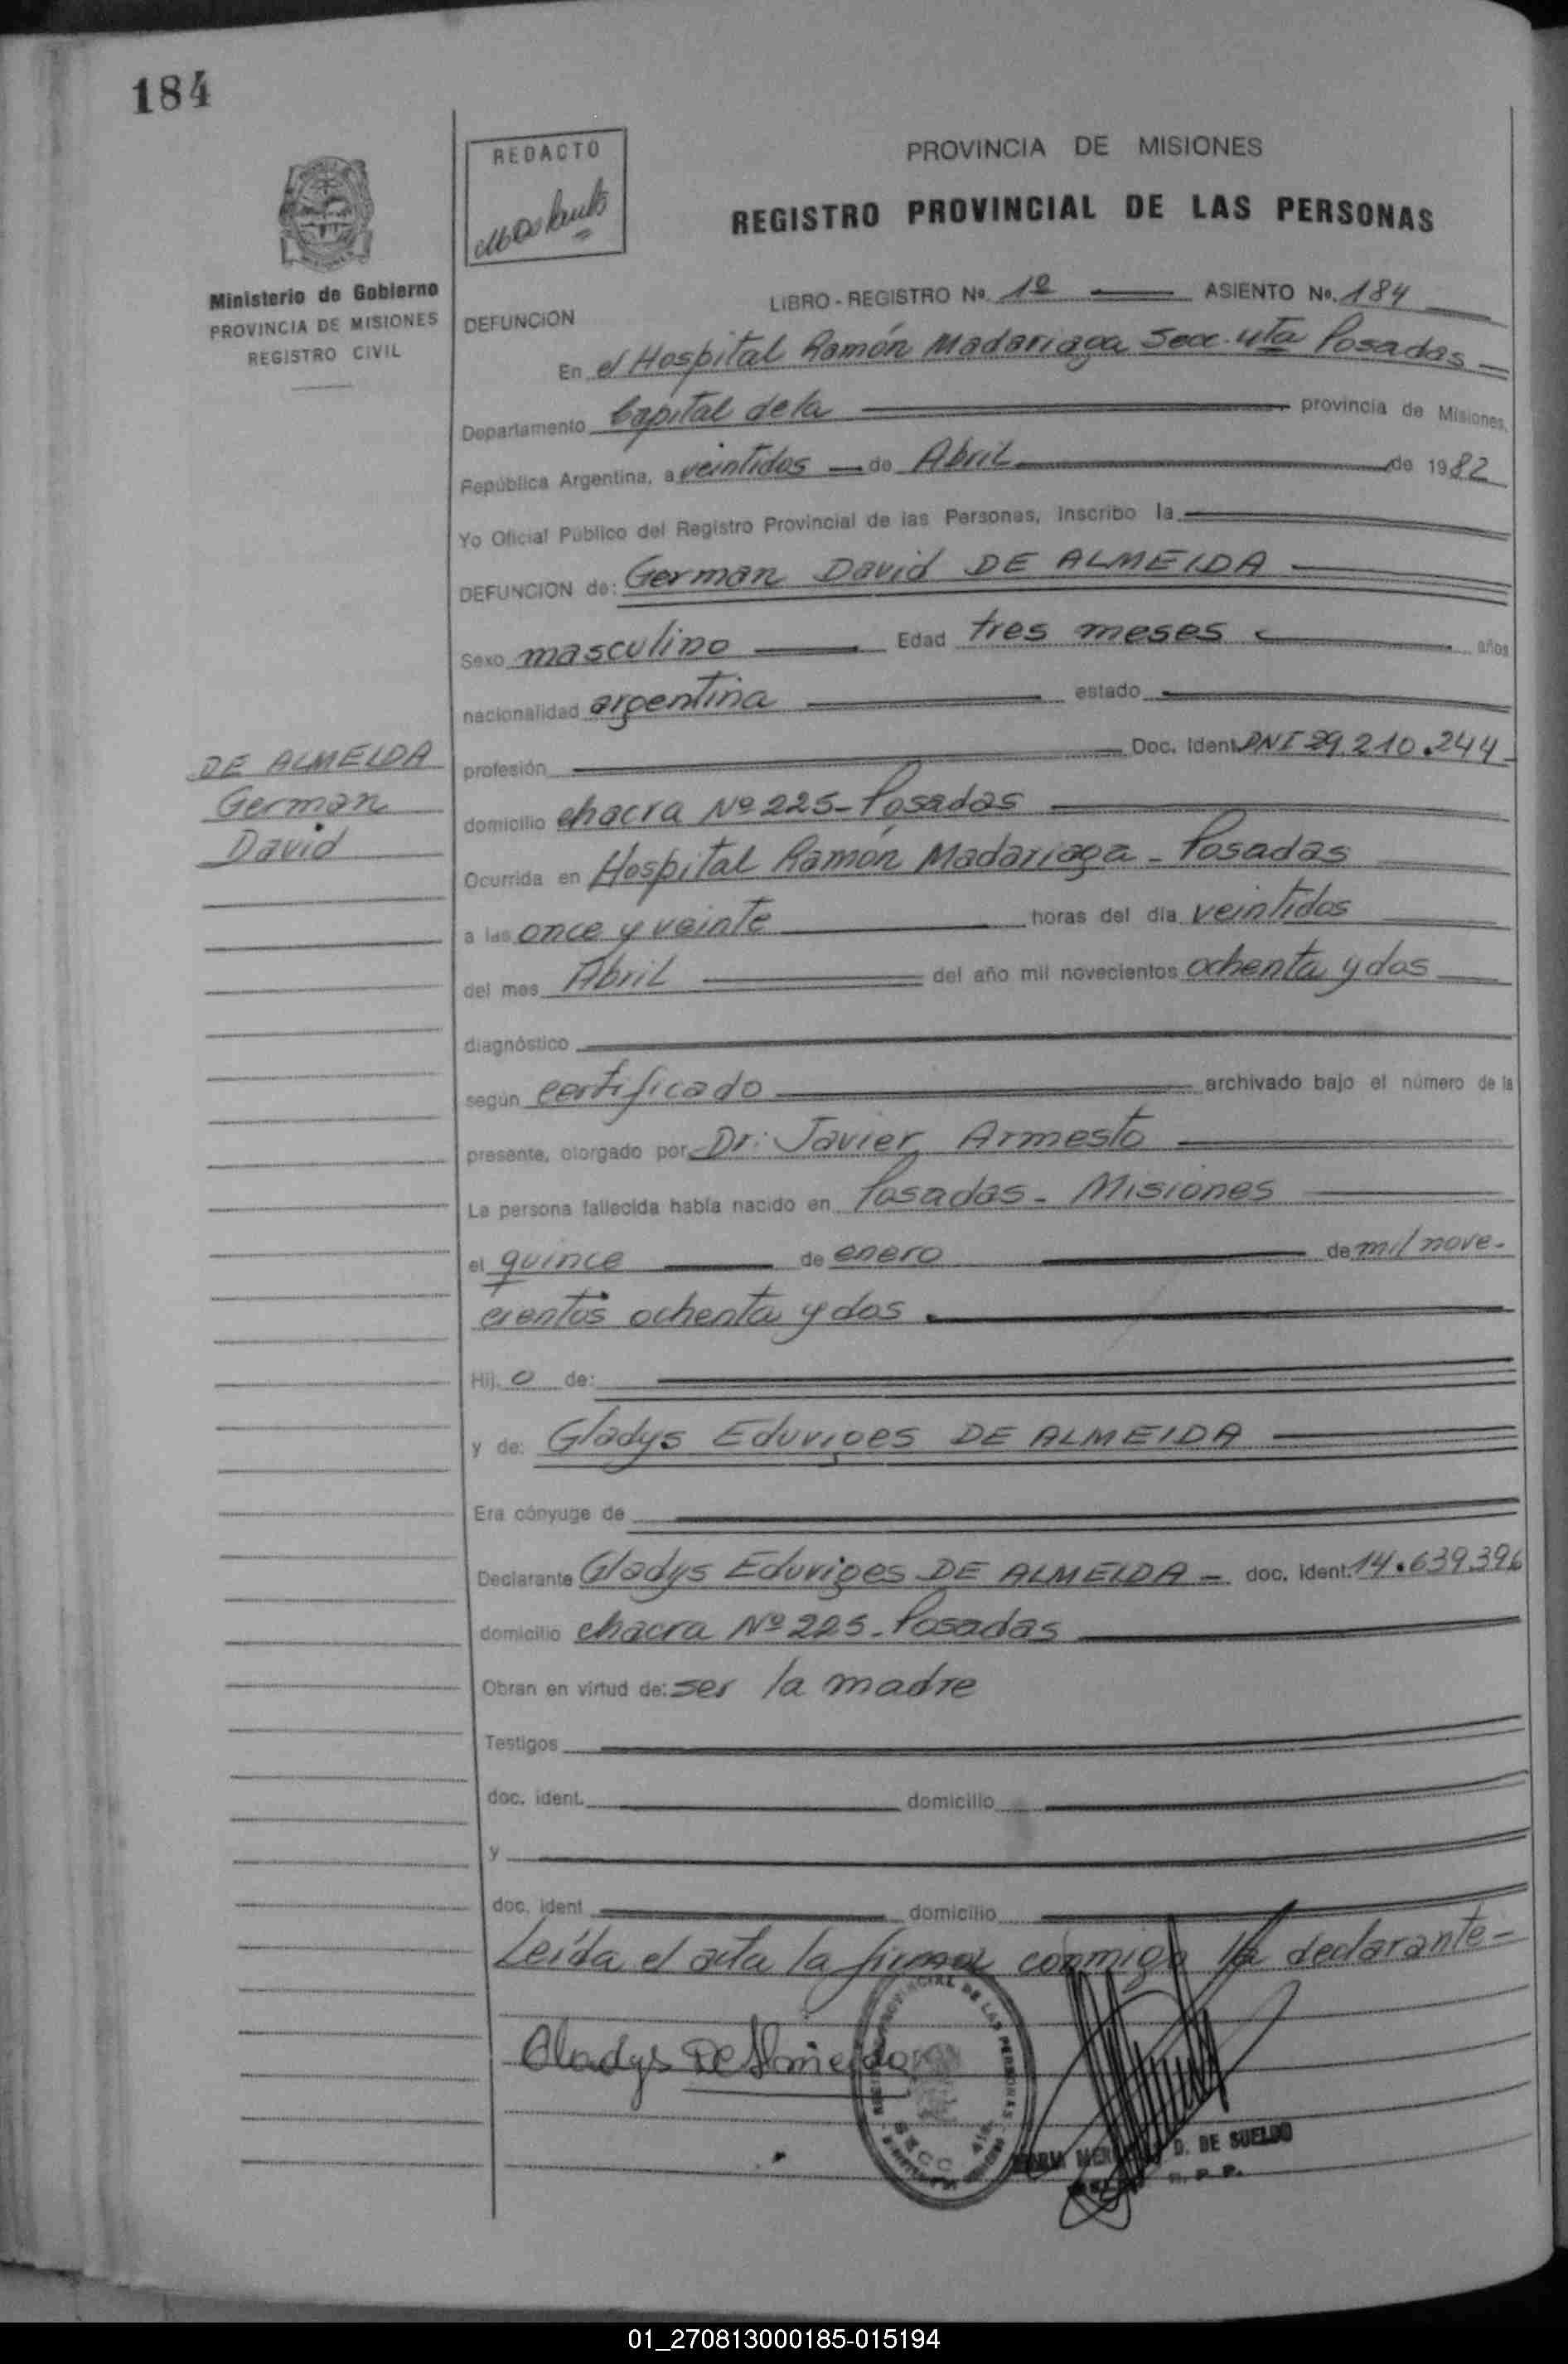 184
REDACTO
PROVINCIA DE MISIONES
REGISTRO PROVINCIAL DE LAS PERSONAS
Ministerio de Gobierno
PROVINCIA DE MISIONES
REGISTRO CIVIL
LIBRO - REGISTRO No. 1º ASIENTO No. 184
DEFUNCION
En el Hospital Ramón Madariaga Secc. 4ta Posadas
Departamento Capital de la provincia de Misiones,
República Argentina, a veintidos de Abril de 1982
Yo Oficial Público del Registro Provincial de las Personas, inscribo la
DEFUNCION de: German David DE ALMEIDA
Sexo masculino Edad tres meses años
nacionalidad argentina estado
DE ALMEIDA
German
David
profesión Doc. Ident. DNI 29.210.244
domicilio chacra Nº 225 - Posadas
Ocurrida en Hospital Ramón Madariaga - Posadas
a las once y veinte horas del día veintidos
del mes Abril del año mil novecientos ochenta y dos
diagnóstico
según certificado archivado bajo el número de la
presente, otorgado por Dr: Javier Armesto
La persona fallecida había nacido en Posadas - Misiones
el quince de enero de mil nove-
cientos ochenta y dos.
Hij o de:
y de: Gladys Eduviges DE ALMEIDA
Era cónyuge de
Declarante Gladys Eduviges DE ALMEIDA - doc. ident. 14.639.396
domicilio chacra Nº 225 - Posadas
Obran en virtud de: ser la madre
Testigos
doc. ident. domicilio
y
doc. ident. domicilio
Leída el acta la firma conmigo la declarante -
Gladys De Almeida
PROVINCIAL DE LAS PERSONAS
SECC 4ta
D. DE SUELDO
R. P. P.
01_270813000185-015194